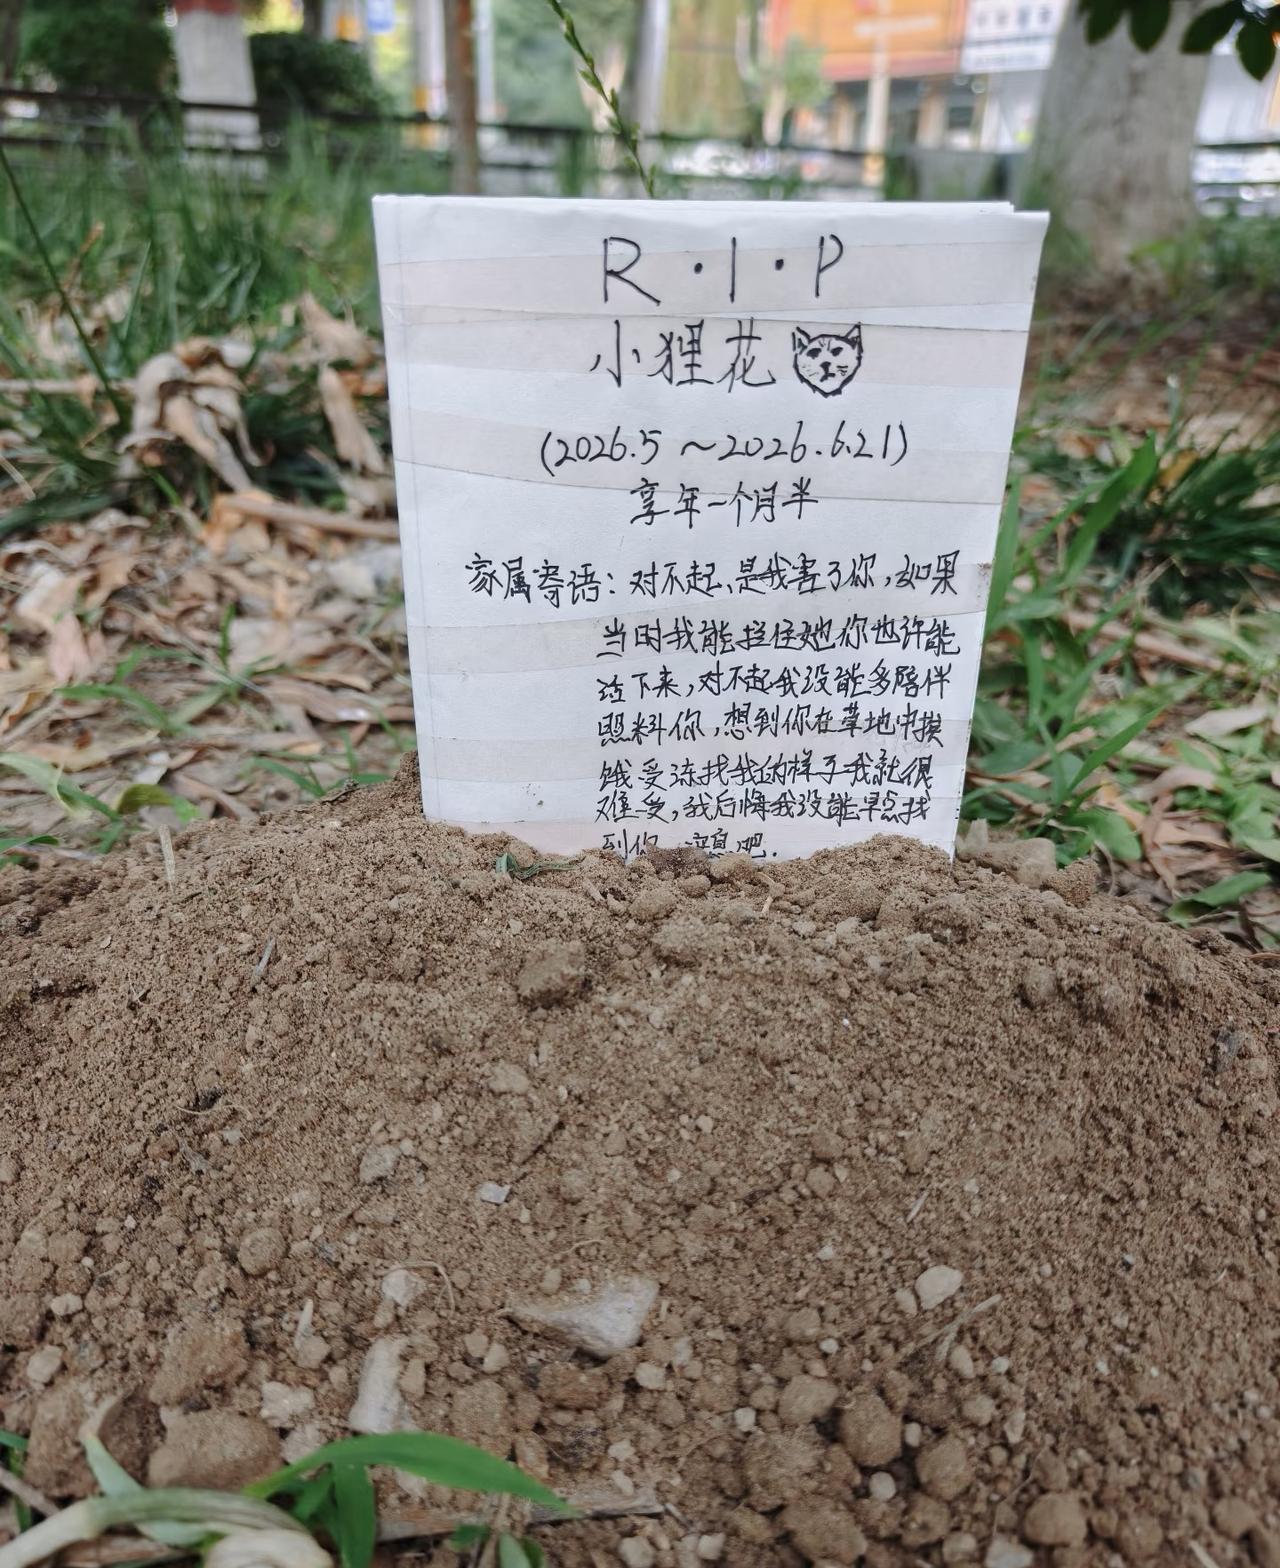 R·I·P
小狸花
(2026.5~2026.6.21)
享年一个月半
家属寄语：对不起，是我害了你，如果
当时我能拦住她你也许能
活下来，对不起我没能多陪伴
照料你，想到你在草地中挨
饿受冻找我的样子我就很
难受，我后悔我没能早点找
到你 安息吧.